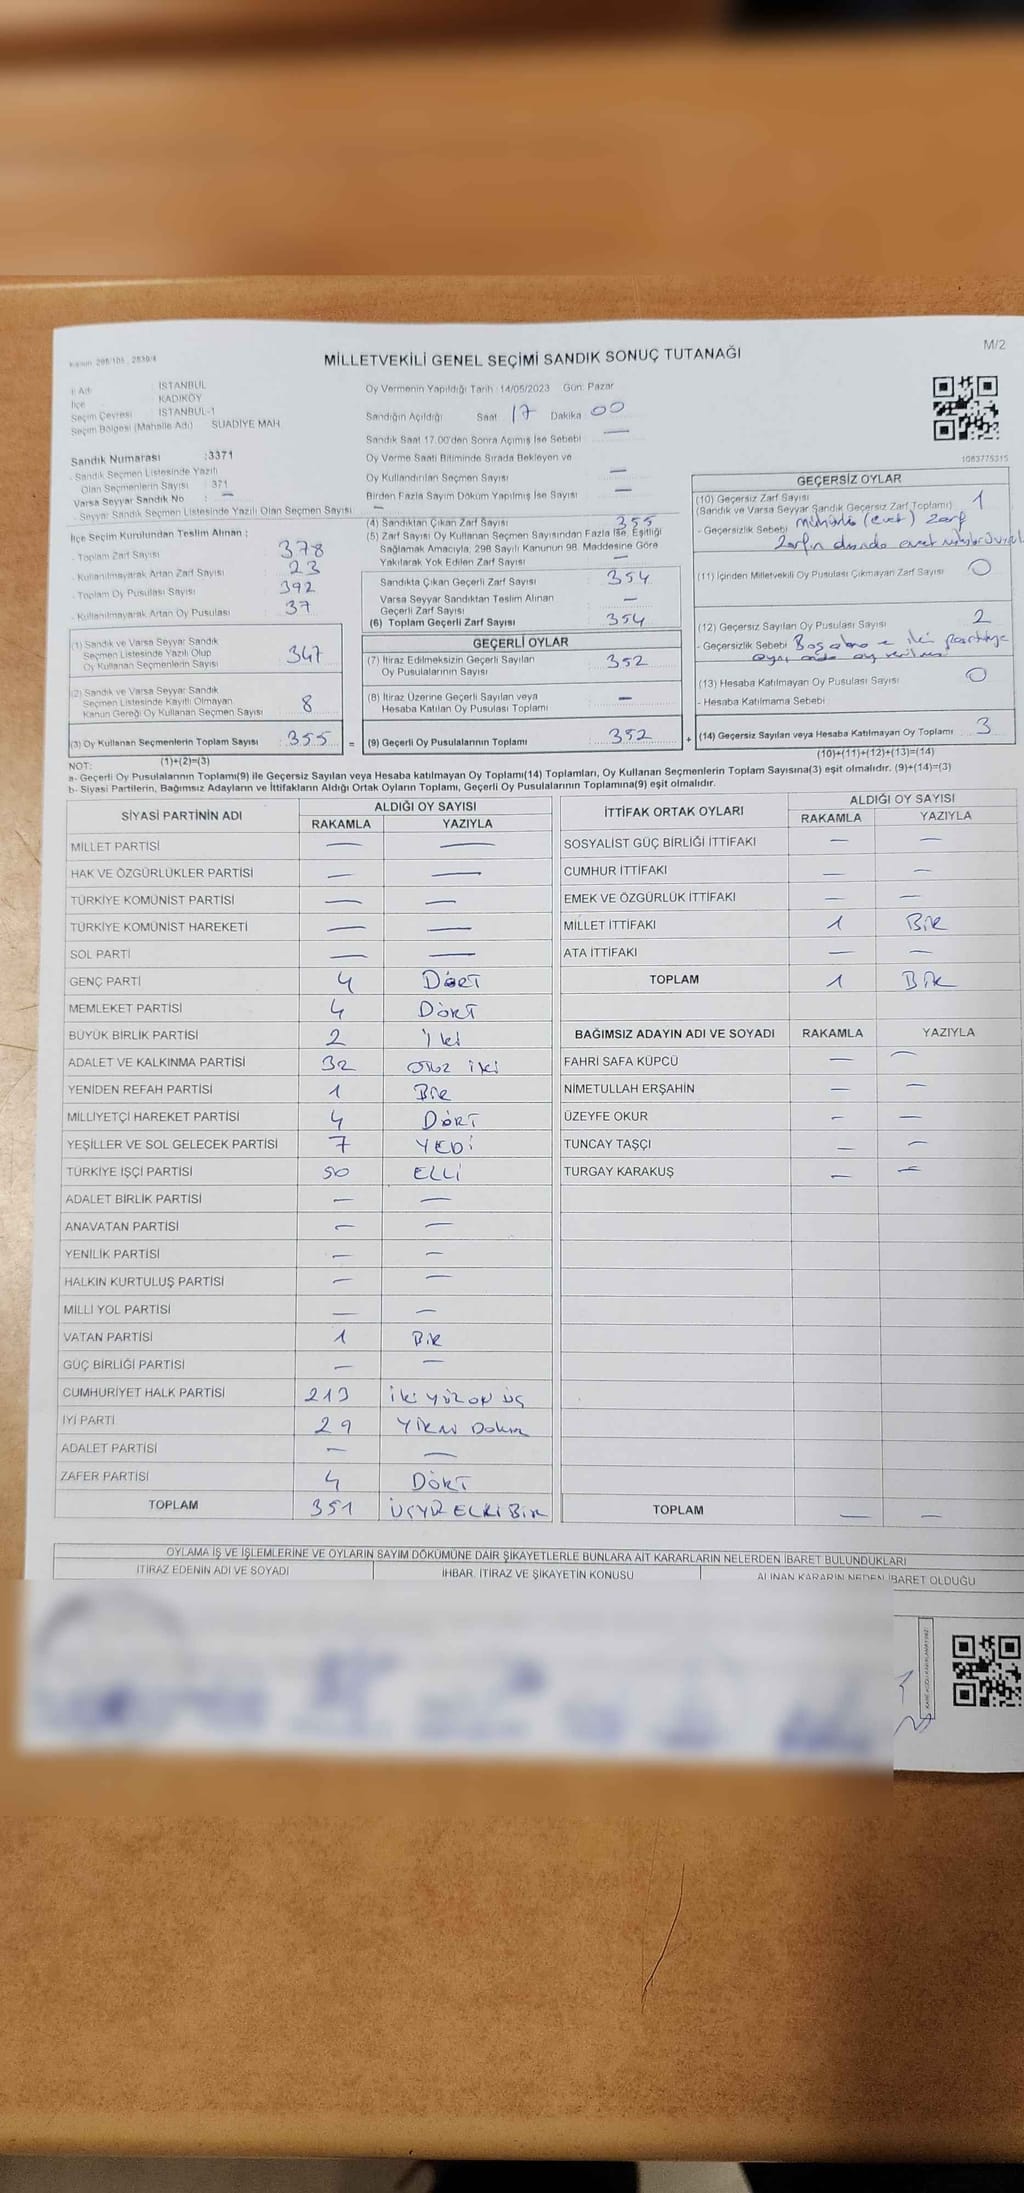 Kanun 298/105, 2839/4
M/2
MİLLETVEKİLİ GENEL SEÇİMİ SANDIK SONUÇ TUTANAĞI
İl Adı : İSTANBUL
İlçe KADIKÖY
Seçim Çevresi : İSTANBUL-1
Seçim Bölgesi (Mahalle Adı) SUADİYE MAH
Sandık Numarası :3371
- Sandık Seçmen Listesinde Yazılı
Olan Seçmenlerin Sayısı : 371
Varsa Seyyar Sandık No : —
- Seyyar Sandık Seçmen Listesinde Yazılı Olan Seçmen Sayısı : —
İlçe Seçim Kurulundan Teslim Alınan ;
- Toplam Zarf Sayısı : 378
- Kullanılmayarak Artan Zarf Sayısı : 23
- Toplam Oy Pusulası Sayısı : 392
- Kullanılmayarak Artan Oy Pusulası : 37
(1) Sandık ve Varsa Seyyar Sandık
Seçmen Listesinde Yazılı Olup
Oy Kullanan Seçmenlerin Sayısı : 347
(2) Sandık ve Varsa Seyyar Sandık
Seçmen Listesinde Kayıtlı Olmayan
Kanun Gereği Oy Kullanan Seçmen Sayısı : 8
(3) Oy Kullanan Seçmenlerin Toplam Sayısı : 355 =
(1)+(2)=(3)
Oy Vermenin Yapıldığı Tarih :14/05/2023 Gün: Pazar
Sandığın Açıldığı Saat 17 Dakika 00
Sandık Saat 17.00'den Sonra Açımış İse Sebebi : —
Oy Verme Saati Bitiminde Sırada Bekleyen ve
Oy Kullandırılan Seçmen Sayısı : —
Birden Fazla Sayım Döküm Yapılmış İse Sayısı : —
(4) Sandıktan Çıkan Zarf Sayısı : 355
(5) Zarf Sayısı Oy Kullanan Seçmen Sayısından Fazla İse, Eşitliği
Sağlamak Amacıyla; 298 Sayılı Kanunun 98. Maddesine Göre
Yakılarak Yok Edilen Zarf Sayısı : —
Sandıkta Çıkan Geçerli Zarf Sayısı : 354
Varsa Seyyar Sandıktan Teslim Alınan
Geçerli Zarf Sayısı : —
(6) Toplam Geçerli Zarf Sayısı : 354
GEÇERLİ OYLAR
(7) İtiraz Edilmeksizin Geçerli Sayılan
Oy Pusulalarının Sayısı : 352
(8) İtiraz Üzerine Geçerli Sayılan veya
Hesaba Katılan Oy Pusulası Toplamı : —
(9) Geçerli Oy Pusulalarının Toplamı : 352 +
1083775315
GEÇERSİZ OYLAR
(10) Geçersiz Zarf Sayısı
(Sandık ve Varsa Seyyar Sandık Geçersiz Zarf Toplamı) : 1
- Geçersizlik Sebebi mühürlü (evet) zarf
Zarfın dışında evet
(11) İçinden Milletvekili Oy Pusulası Çıkmayan Zarf Sayısı : 0
(12) Geçersiz Sayılan Oy Pusulası Sayısı : 2
- Geçersizlik Sebebi Boş iki partiye
aynı anda oy
(13) Hesaba Katılmayan Oy Pusulası Sayısı : 0
- Hesaba Katılmama Sebebi
(14) Geçersiz Sayılan veya Hesaba Katılmayan Oy Toplamı : 3
(10)+(11)+(12)+(13)=(14)
NOT:
a- Geçerli Oy Pusulalarının Toplamı(9) ile Geçersiz Sayılan veya Hesaba katılmayan Oy Toplamı(14) Toplamları, Oy Kullanan Seçmenlerin Toplam Sayısına(3) eşit olmalıdır. (9)+(14)=(3)
b- Siyasi Partilerin, Bağımsız Adayların ve İttifakların Aldığı Ortak Oyların Toplamı, Geçerli Oy Pusulalarının Toplamına(9) eşit olmalıdır.
SİYASİ PARTİNİN ADI ALDIĞI OY SAYISI
RAKAMLA YAZIYLA
MİLLET PARTİSİ — —
HAK VE ÖZGÜRLÜKLER PARTİSİ — —
TÜRKİYE KOMÜNİST PARTİSİ — —
TÜRKİYE KOMÜNİST HAREKETİ — —
SOL PARTİ — —
GENÇ PARTİ 4 DÖRT
MEMLEKET PARTİSİ 4 DÖRT
BÜYÜK BİRLİK PARTİSİ 2 İki
ADALET VE KALKINMA PARTİSİ 32 OTUZ iki
YENİDEN REFAH PARTİSİ 1 BİR
MİLLİYETÇİ HAREKET PARTİSİ 4 DÖRT
YEŞİLLER VE SOL GELECEK PARTİSİ 7 YEDİ
TÜRKİYE İŞÇİ PARTİSİ 50 ELLİ
ADALET BİRLİK PARTİSİ — —
ANAVATAN PARTİSİ — —
YENİLİK PARTİSİ — —
HALKIN KURTULUŞ PARTİSİ — —
MİLLİ YOL PARTİSİ — —
VATAN PARTİSİ 1 BİR
GÜÇ BİRLİĞİ PARTİSİ — —
CUMHURİYET HALK PARTİSİ 213 iki yüz on üç
İYİ PARTİ 29 Yirmi Dokuz
ADALET PARTİSİ — —
ZAFER PARTİSİ 4 DÖRT
TOPLAM 351 ÜÇYÜZ ELLİ BİR
İTTİFAK ORTAK OYLARI ALDIĞI OY SAYISI
RAKAMLA YAZIYLA
SOSYALİST GÜÇ BİRLİĞİ İTTİFAKI — —
CUMHUR İTTİFAKI — —
EMEK VE ÖZGÜRLÜK İTTİFAKI — —
MİLLET İTTİFAKI 1 BİR
ATA İTTİFAKI — —
TOPLAM 1 BİR
BAĞIMSIZ ADAYIN ADI VE SOYADI RAKAMLA YAZIYLA
FAHRİ SAFA KÜPCÜ — —
NİMETULLAH ERŞAHİN — —
ÜZEYFE OKUR — —
TUNCAY TAŞÇI — —
TURGAY KARAKUŞ — —
TOPLAM — —
OYLAMA İŞ VE İŞLEMLERİNE VE OYLARIN SAYIM DÖKÜMÜNE DAİR ŞİKAYETLERLE BUNLARA AİT KARARLARIN NELERDEN İBARET BULUNDUKLARI
İTİRAZ EDENİN ADI VE SOYADI İHBAR, İTİRAZ VE ŞİKAYETİN KONUSU ALINAN KARARIN NEDEN İBARET OLDUĞU